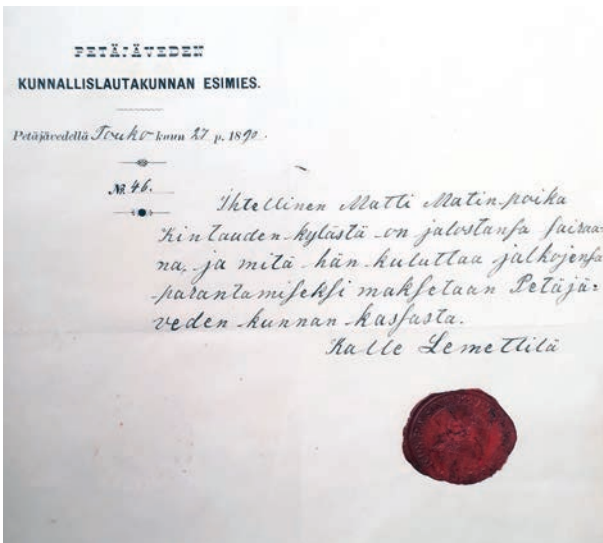 PETÄJÄVEDEN
KUNNALLISLAUTAKUNNAN ESIMIES.
Petäjävedellä Touko kuun 27 p. 1890.
No 46.
Ihtellinen Matti Matin poika
Kintauden kylästä on jalostansa sairaa-
na, ja mitä hän kuluttaa jalkojensa
parantamiseksi maksetaan Petäjä-
veden kunnan kassasta.
Kalle Lemettilä